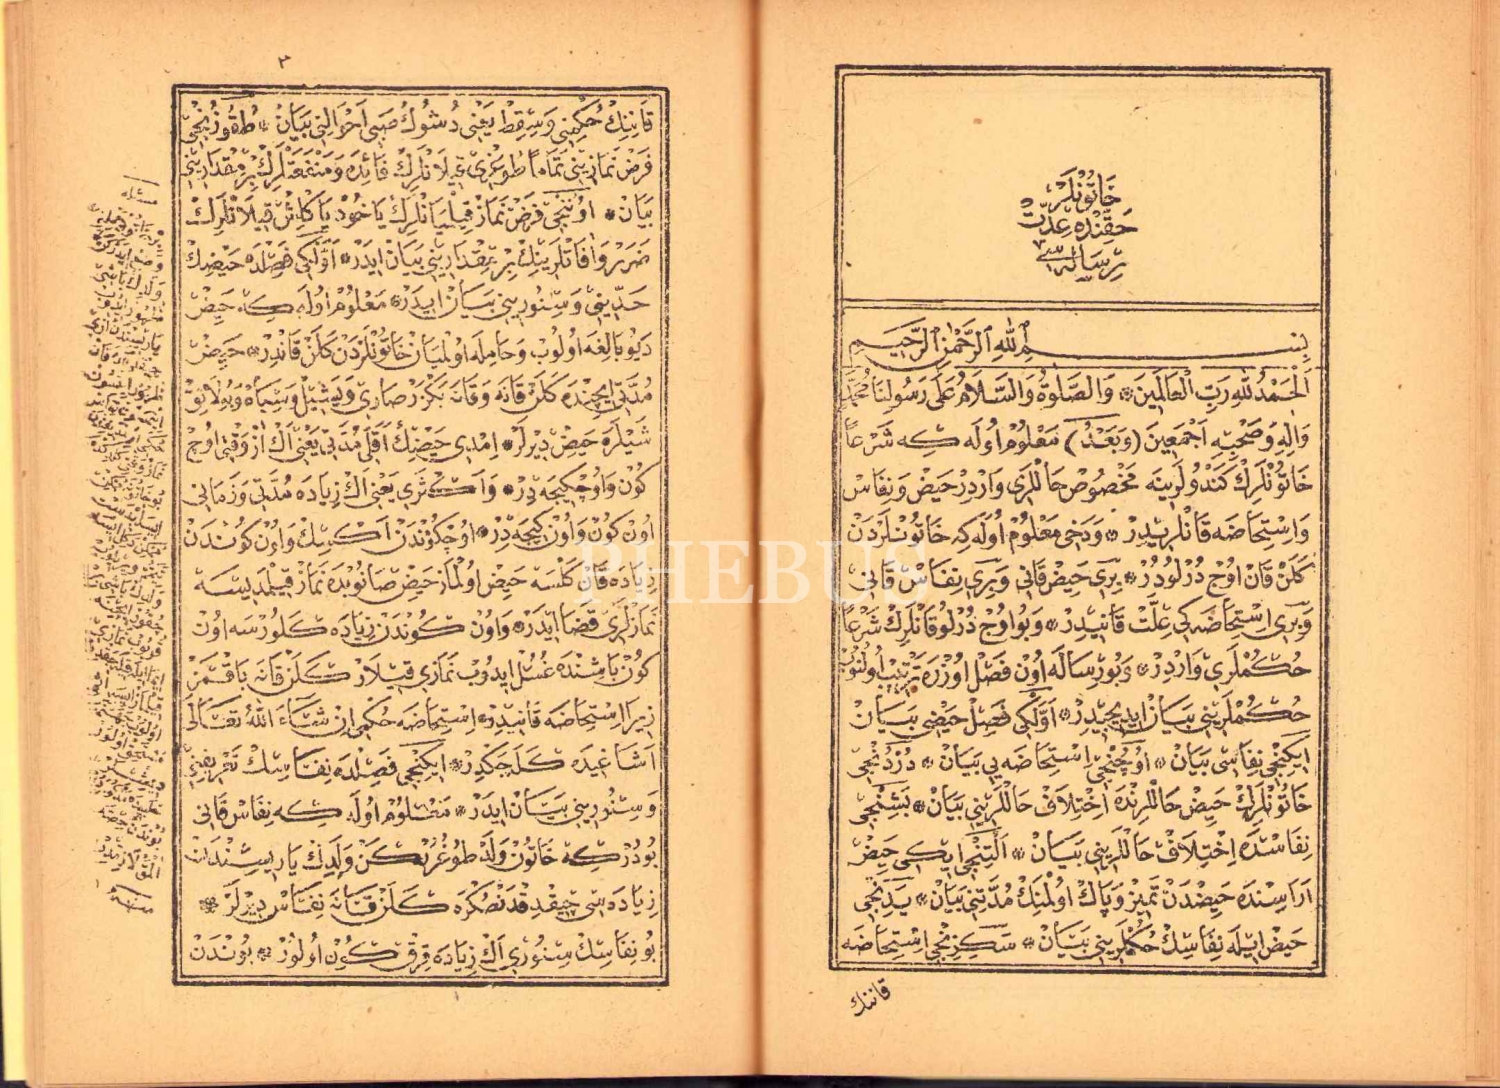 خاتونلر
حقنده عدت
رساله سی
بسم الله الرحمن الرحيم
الحمد لله رب العالمين * والصلوة والسلام على رسولنا محمد
واله وصحبه اجمعين (وبعد) معلوم اوله كه شرعا
خاتونلرك كندولرينه مخصوص حاللرى واردر حيض ونفاس
واستحاضه قانلريدر * ودخى معلوم اوله كه خاتونلردن
كلن قان اوج درلودر * برى حيض قانى وبرى نفاس قانى
وبرى استحاضه كى علت قانيدر * وبو اوج درلو قانلرك شرعا
حكملرى واردر * وبو رساله اون فصل اوزره ترتيب اولنوب
حكملرينى بيان ايديجيدر * اولكى فصل حيضى بيان
ايكنجى نفاسى بيان * اوچنجى استحاضه يى بيان * دردنجى
خاتونلرك حيض حاللرنده اختلاف حاللرينى بيان * بشنجى
نفاسده اختلاف حاللرينى بيان * التنجى ايكى حيض
اراسنده حيضدن تميز وپاك اولمنك مدتنى بيان * يدنجى
حيض ايله نفاسك حكملرينى بيان * سكزنجى استحاضه
قاننك
٢
قاننك حكمنى وسقط يعنى دشوك صبى احوالنى بيان * طقوزنجى
فرض نمازينى تماما طوغرى قيلانلرك فائده ومنفعتلرك بر مقدارينى
بيان * اوننجى فرض نماز قيلميانلرك ياخود ياكلش قيلانلرك
ضرر وافاتلرينك بر مقدارينى بيان ايدر * اولكى فصلده حيضك
حدينى وسنورينى بيان ايدر * معلوم اوله كه حيض
ديو بالغه اولوب وحامله اولميان خاتونلردن كلن قاندر * حيض
مدتى ايچنده كلن قانه وقانه بكزر صارى ويشيل وسياه وبولانق
شيلره حيض ديرلر * امدى حيضك اقل مدتى يعنى اك از وقتى اوچ
كون واوچ كيجه در * واكثرى يعنى اك زياده مدتى وزمانى
اون كون واون كيجه در * اوچ كوندن اكسك واون كوندن
زياده قان كلسه حيض اولماز حيض صانوبده نماز قيلمديسه
نمازلرى قضا ايدر * واون كوندن زياده كلورسه اون
كون باشنده غسل ايدوب نمازى قيلار كلن قانه باقمز
زيرا استحاضه قانيدر * استحاضه حكمى ان شاء الله تعالى
اشاغيده كله جكدر * ايكنجى فصلده نفاسك تعريفنى
وسنورينى بيان ايدر * معلوم اوله كه نفاس قانى
بودركه خاتون ولد طوغرركن ولدك ياريسندن
زياده سى چيقدقدنصكره كلن قانه نفاس ديرلر *
بو نفاسك سنورى اك زياده قرق كون اولور * بوندن
PHEBUS